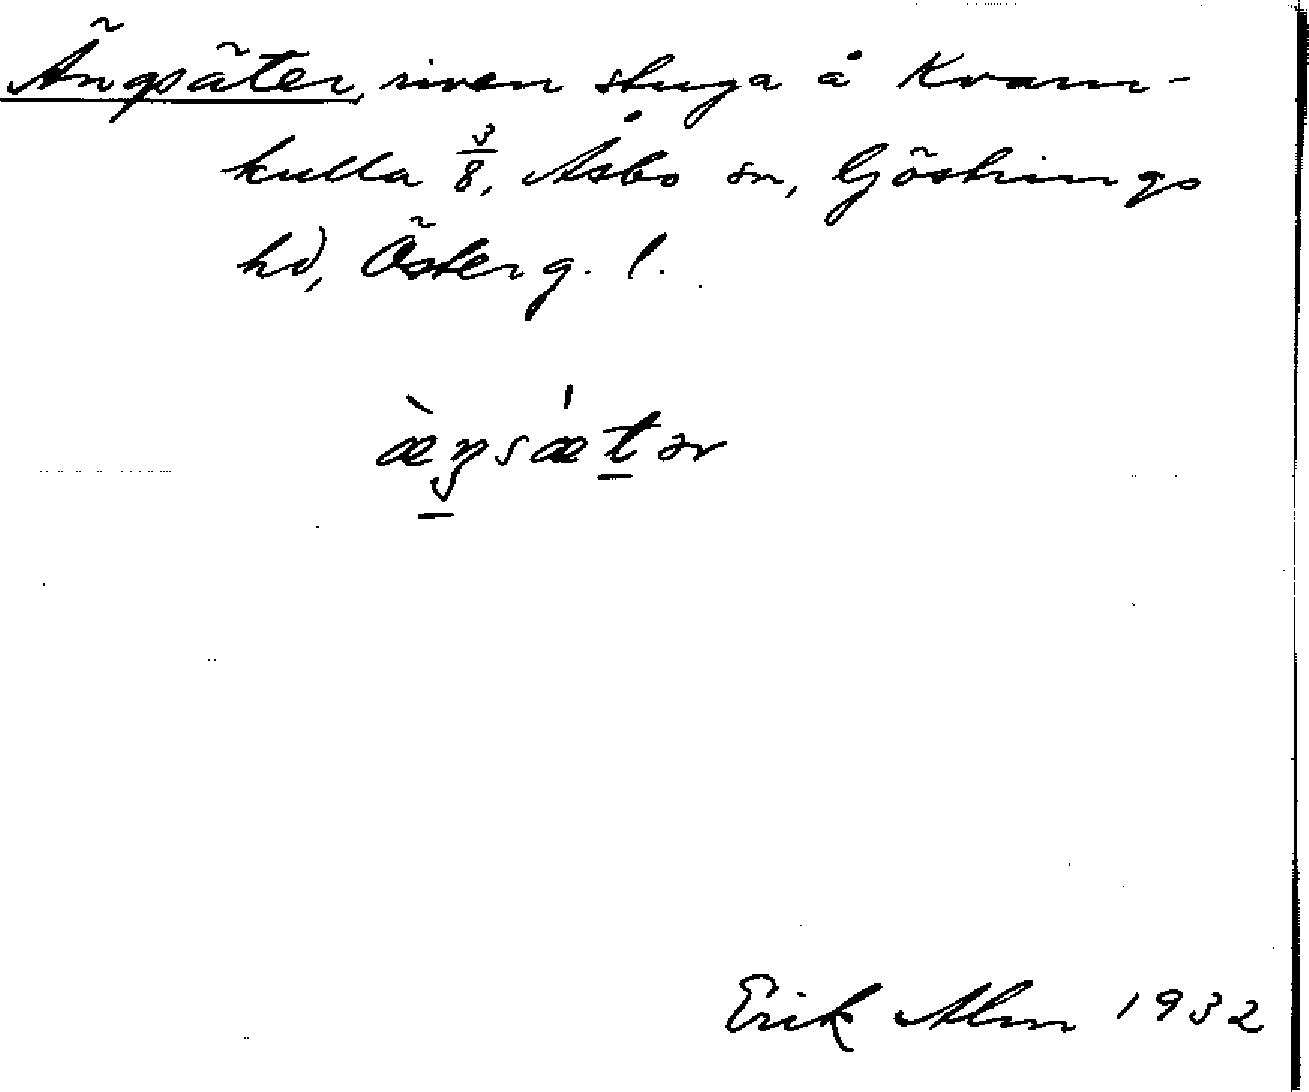 Ängsäter, riven stuga å Kvarn-
kulla 3/8, Åsbo sn, Göstrings
hd, Österg. l.
æ̀ŋsǽtər
Erik Alm 1932